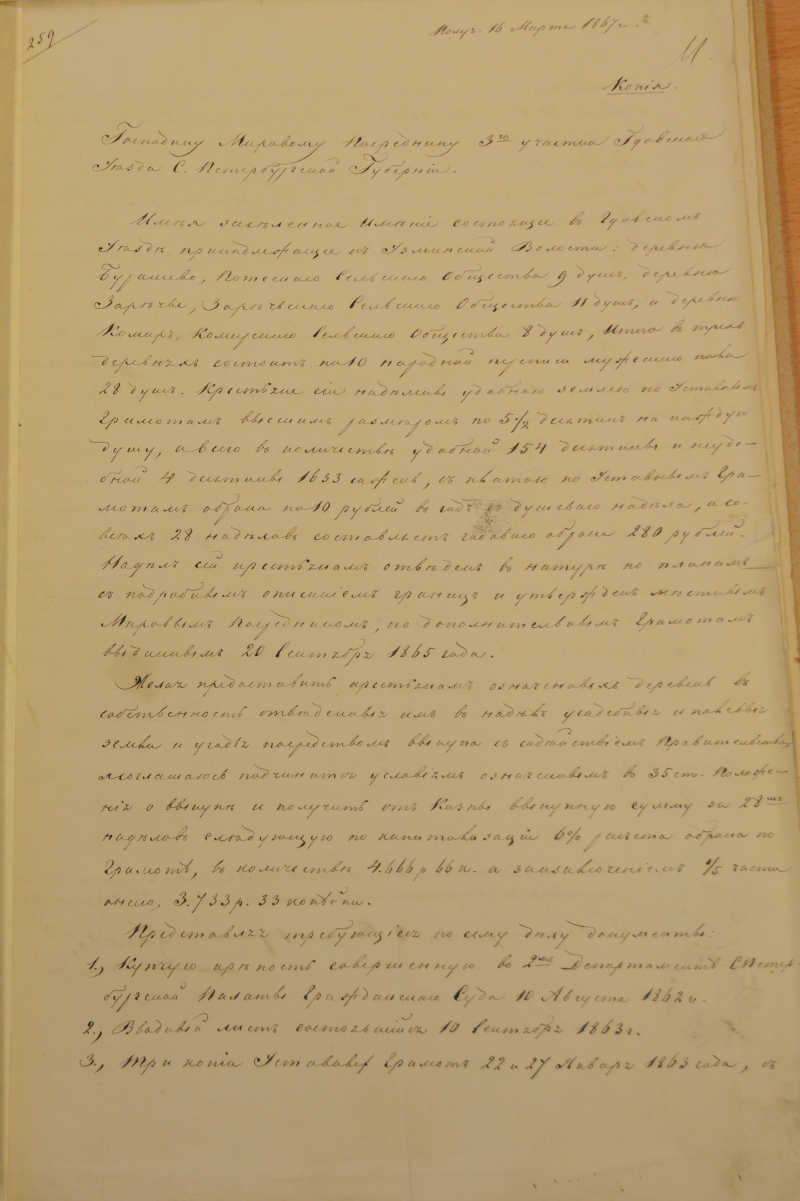 259
Получ. 16 Марта 1867 г.
11.
Копія.
Господину Мировому Посреднику 3го участка Гдовскаго
Уѣзда С. Петербургской Губерніи.
Имѣя населенное имѣніе состоящее въ Гдовскомъ
Уѣздѣ принадлежащее къ Узьминской Волости: деревня
Сельскаго Общества 9 душъ, деревня
Зарѣчье, Зарѣчьенскаго Сельскаго Общества 11 душъ, и деревня
Сельскаго Общества 8 душъ, Итого въ трехъ
деревняхъ состоитъ по 10 народной переписи мужескаго пола
28 душъ. Крестьяне сіи надѣлены удобною землею по Уставнымъ
Грамотамъ высшимъ размѣромъ по 5 1/2 десятинъ на каждую
душу, а всего въ количествѣ удобной 154 десятины и неудо-
бной 4 десятины 1633 сажень, съ платою по Уставнымъ Гра-
мотамъ оброка по 10 рублей въ годъ съ душеваго надѣла, а со
всѣхъ 28 надѣловъ составляетъ годоваго оброка 280 рублей.
Надѣлъ сей крестьянамъ отведенъ въ натурѣ по планамъ
съ подробнымъ описаніемъ границъ и утвержденъ мѣстнымъ
Мировымъ Посредникомъ, по дополнительнымъ Грамотамъ
выданнымъ 20 Сентября 1865 года.
Желая предоставить крестьянамъ означенныхъ деревень въ
собственность отведенныя имъ въ надѣлъ усадебныя и полевыя
земли и угодья посредствомъ выкупа съ содѣйствіемъ Правительства,
я соглашаюсь подчинится условіямъ означеннымъ въ 35 ст. Положе-
нія о выкупѣ и получить отъ Казны выкупную сумму за 28мь
надѣловъ слѣдующую по капитализаціи 6% расчета оброка по
Грамотѣ, въ количествѣ 4.666 р 66 к. а за исключеніемъ 1/5 части
онаго, 3.733 р. 33 копѣйки.
Представляя требующіеся по сему дѣлу документы:
1., Купчую крѣпость совершенную во 2мъ Департаментѣ С Петер-
бургской Палаты Гражданскаго Суда 10 Августа 1862 г.
2., Вводный листъ состоявшійся 10 Сентября 1863 г.
3., Три копіи Уставныхъ Грамотъ 22 и 27 Января 1863 года, съ